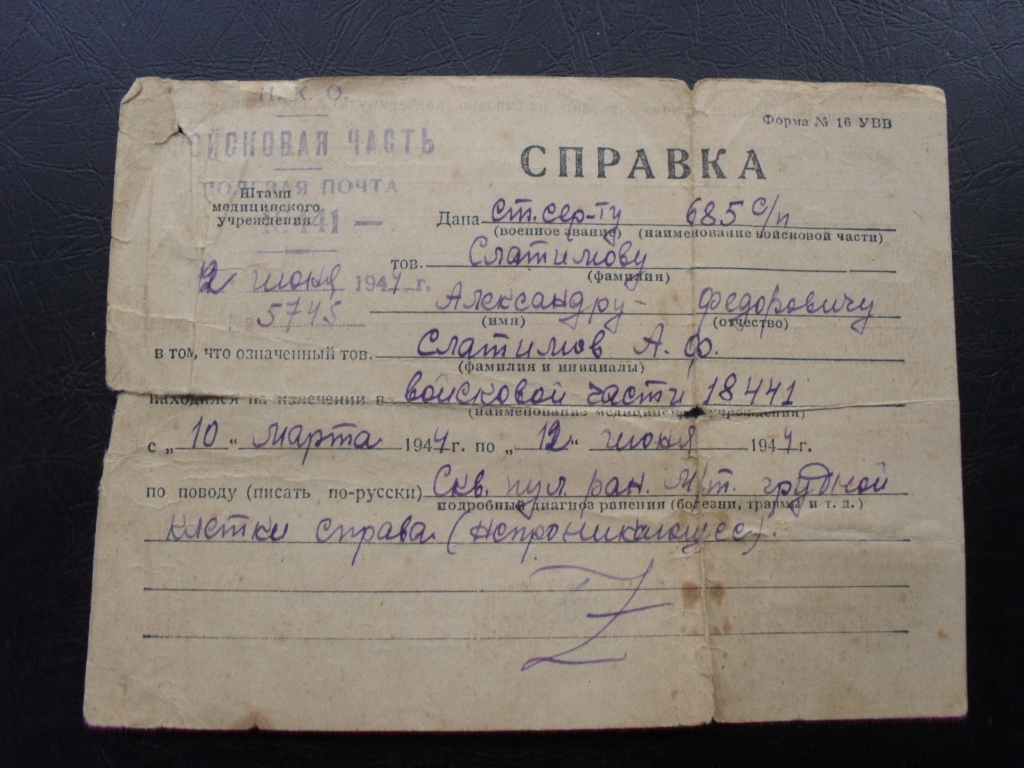 Н. К. О.
ВОЙСКОВАЯ ЧАСТЬ
ПОЛЕВАЯ ПОЧТА
18441 —
Штамп
медицинского
учреждения
12 июня 1944 г.
№ 5745
Форма № 16 УВВ
СПРАВКА
Дана ст. сер-ту 685 с/п
(военное звание) (наименование войсковой части)
тов. Слатимову
(фамилия)
Александру Федоровичу
(имя) (отчество)
в том, что означенный тов. Слатимов А. Ф.
(фамилия и инициалы)
находился на излечении в войсковой части 18441
(наименование медицинск. учреждения)
с „10" марта 1944 г. по „12" июня 1944 г.
по поводу (писать по-русски) Скв. пул. ран. м/т. грудной
подробный диагноз ранения (болезни, травма и т. д.)
клетки справа (непроникающее).